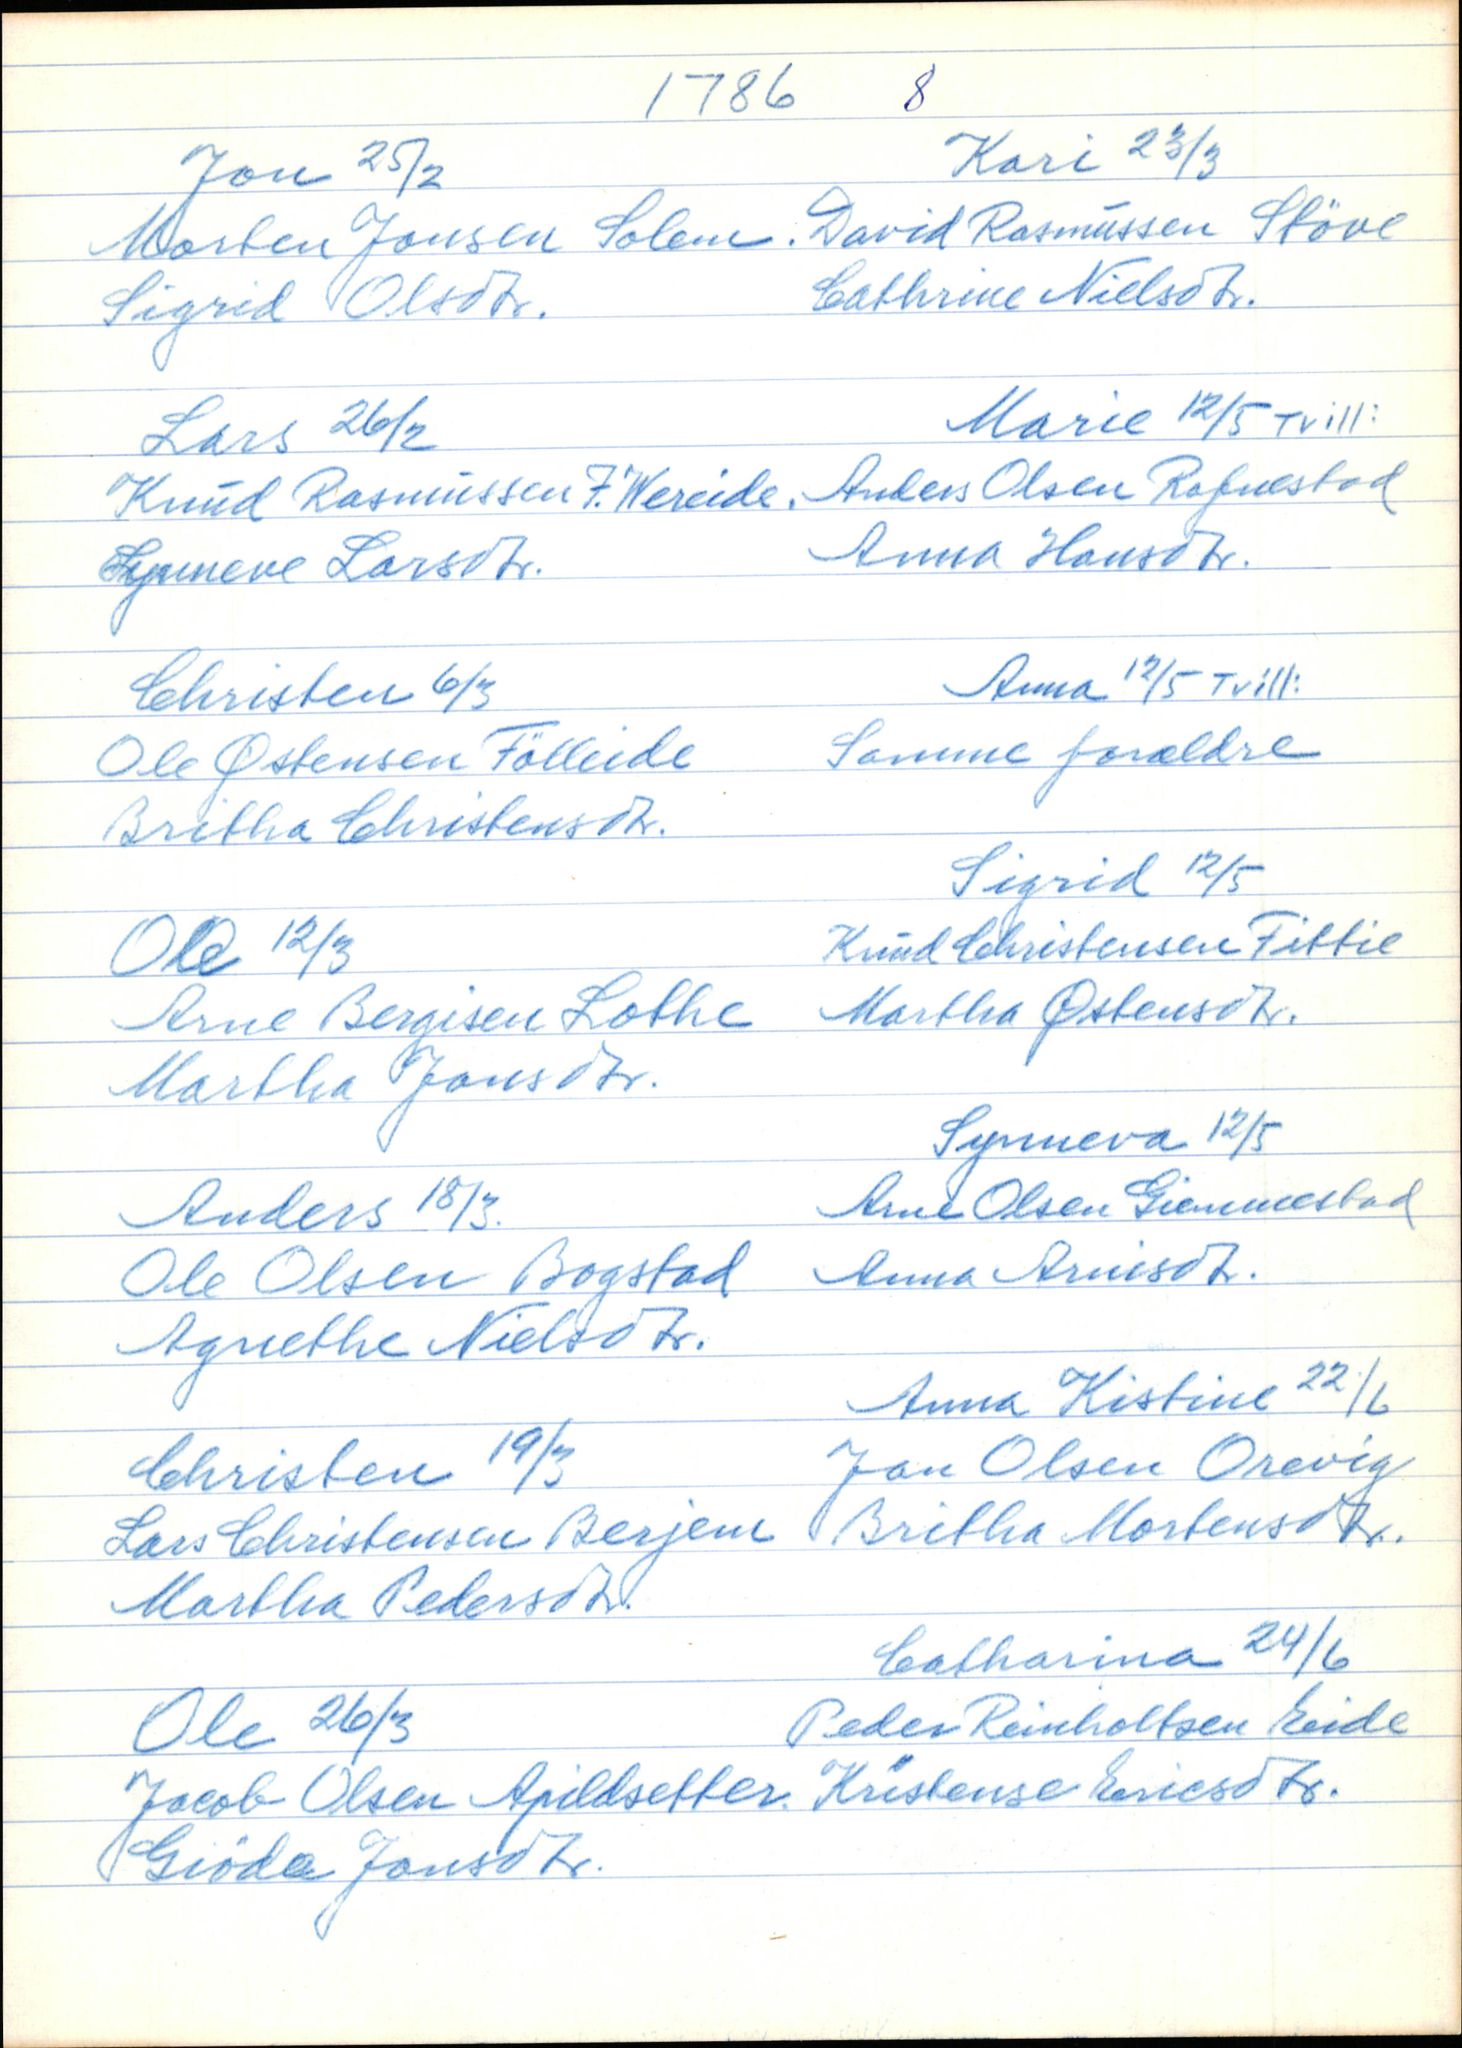 1786 8
Jon 25/2
Morten Jonsen Solem.
Sigrid Olsdtr.
Lars 26/2
Knŭd Rasmŭssen F. Wereide.
Synneve Larsdtr.
Christen 6/3
Ole Østensen Fölleide
Britha Christensdtr.
Ole 12/3
Arne Bergisen Lothe
Martha Jonsdtr.
Anders 18/3.
Ole Olsen Bogstad
Agnethe Nielsdtr.
Christen 19/3
Lars Christensen Berjem
Martha Pedersdtr.
Ole 26/3
Jacob Olsen Apildsetter.
Giöda Jonsdtr.
Kari 23/3
David Rasmŭssen Støve
Cathrine Nielsdtr.
Marie 12/5 Tvill:
Anders Olsen Rafnestad
Anna Hansdtr.
Anna 12/5 Tvill:
Samme forældre
Sigrid 12/5
Knŭd Christensen Fittie
Martha Østensdtr.
Synneva 12/5
Arne Olsen Giemmestad
Anna Arnisdtr.
Anna Kistine 22/6
Jon Olsen Orevig
Britha Mortensdtr.
Catharina 24/6
Peder Reinholtsen Eide
Kristense Ericsdtr.